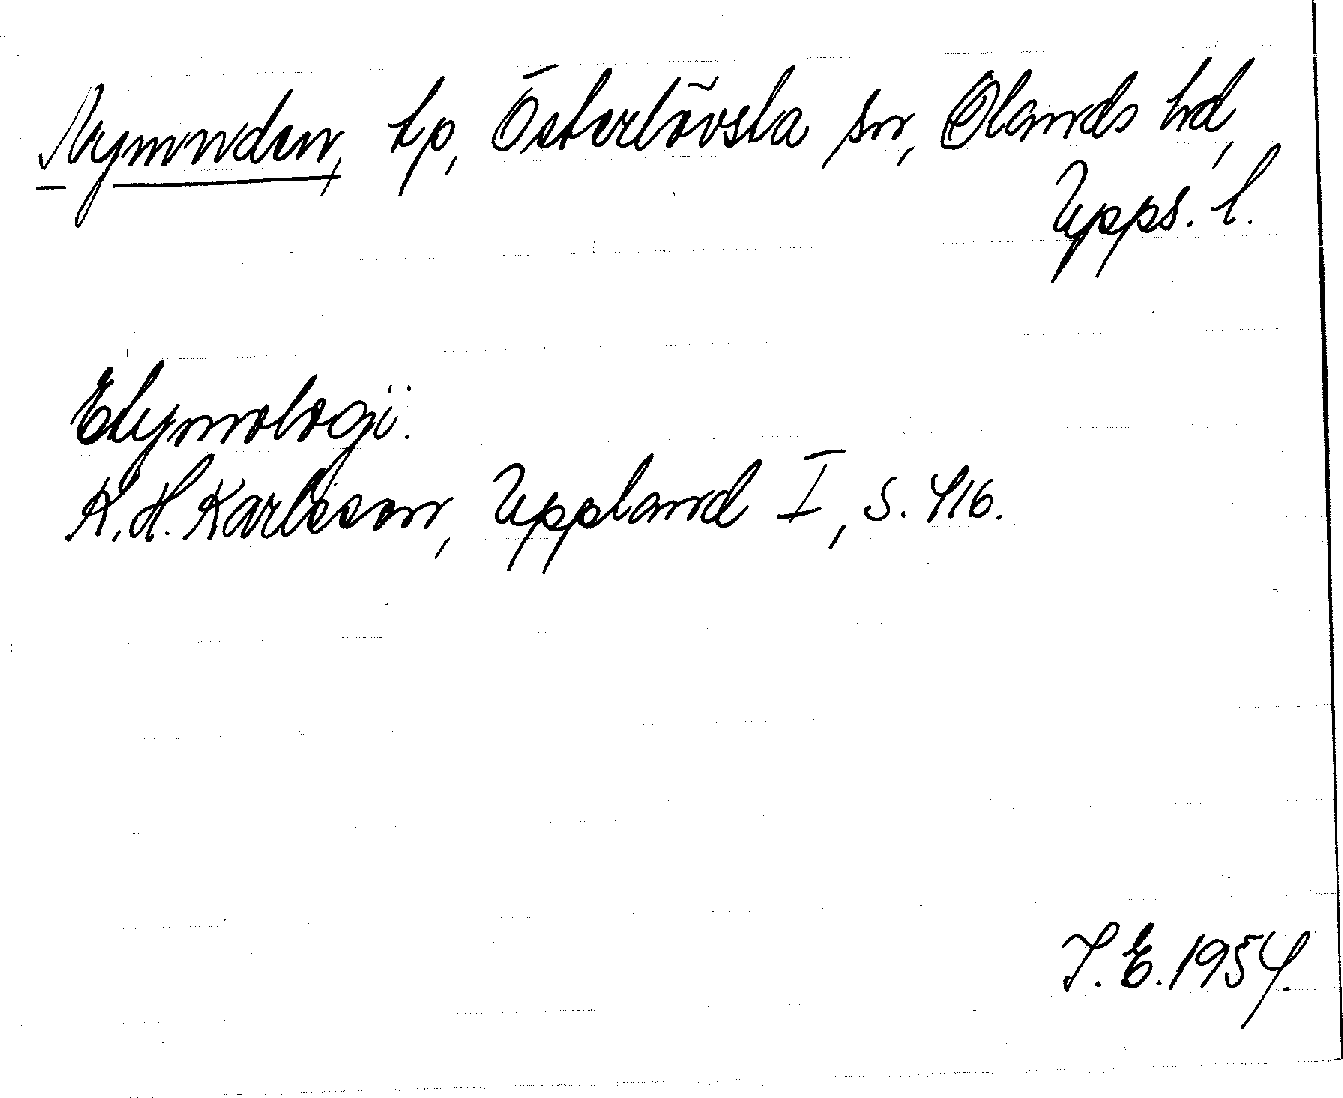 Nymnden, tp, Österlövsta sn, Olands hd,
Upps. l.
Etymologi.
K. H. Karlsson, Uppland I, s. 416.
I. E. 1954.